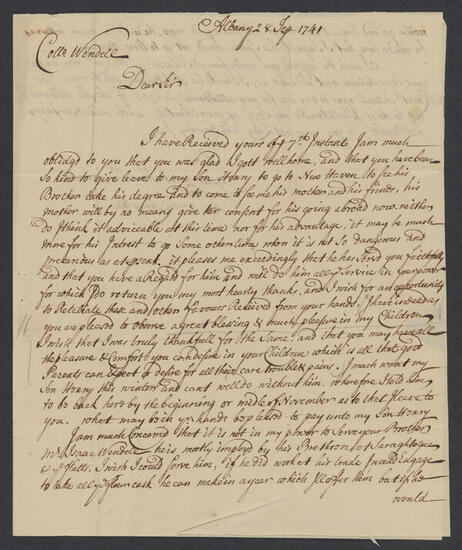 Albany 28 Sep 1741
Collo Wendell
Dear Sir
I have Received yours of ye 7th Instant I am much
obliged to you that you was glad I gott well home, and that you have been
so kind to give leave to my Son Henry to go to New Haven to see his
Brother take his degree and to come to see me his mother and his friends, his
mother will by no means give her consent for his going abroad now. neither
do I think it adviceable at this time nor for his advantage, it may be much
more for his Intrest to go some other time when it is not so dangerous and
precarious as at prest. it pleases me exceedingly that he has serv'd you faithfully
and that you have a Regard for him and will do him all ye Service in your power
for which I do return you my most hearty thanks, and I wish for an opportunity
to Retaliate these and other favours Received from your hands, I have indeed as
you are pleased to observe a great blessing & much pleasure in my Children
I wish that I was truly thankfull for the same. and that you may have all
the pleasure & Comfort you can desire in your Children which is all that good
Parents can Expect or desire for all their care trouble & pains. I much want my
Son Henry this winter and cant well do without him, wherefore I told him
to be back here by the beginning or midle of November as to that I leave to
you. what may be in yr hands be pleased to pay unto my Son Henry
I am much Concerned that it is not in my power to Serve your Brother
Mr Isaac Wendell he is mostly employd by his Brethren at Saraghtoga
& ye flatts. I wish I could serve him, if he did work at his trade I would Engage
to take all ye flour cask he can make in a year which I Offer him but if he
would